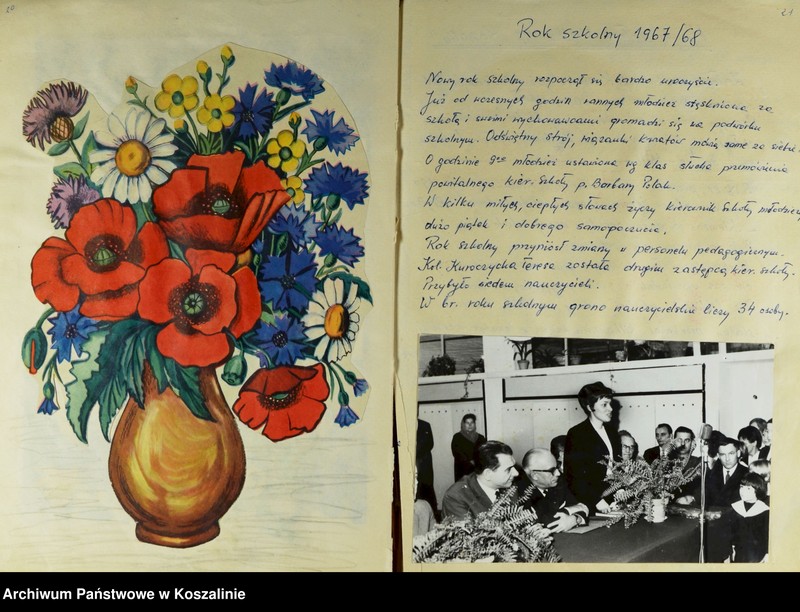 20
21
Rok szkolny 1967/68
Nowy rok szkolny rozpoczął się bardzo uroczyście.
Już od wczesnych godzin rannych młodzież stęskniona za
szkołą i swoimi wychowawcami gromadzi się na podwórku
szkolnym. Odświętny strój, wiązanki kwiatów mówią same za siebie.
O godzinie 9ºº młodzież ustawiona wg klas słucha przemówienia
powitalnego kier. Szkoły p. Barbary Polak.
W kilku miłych, ciepłych słowach życzy kierownik Szkoły młodzieży
dużo piątek i dobrego samopoczucia.
Rok szkolny przyniósł zmiany w personelu pedagogicznym.
Kol. Teresa została drugim zastępcą kier. szkoły.
Przybyło siedem nauczycieli.
W br. roku szkolnym grono nauczycielskie liczy 34 osoby.
Archiwum Państwowe w Koszalinie